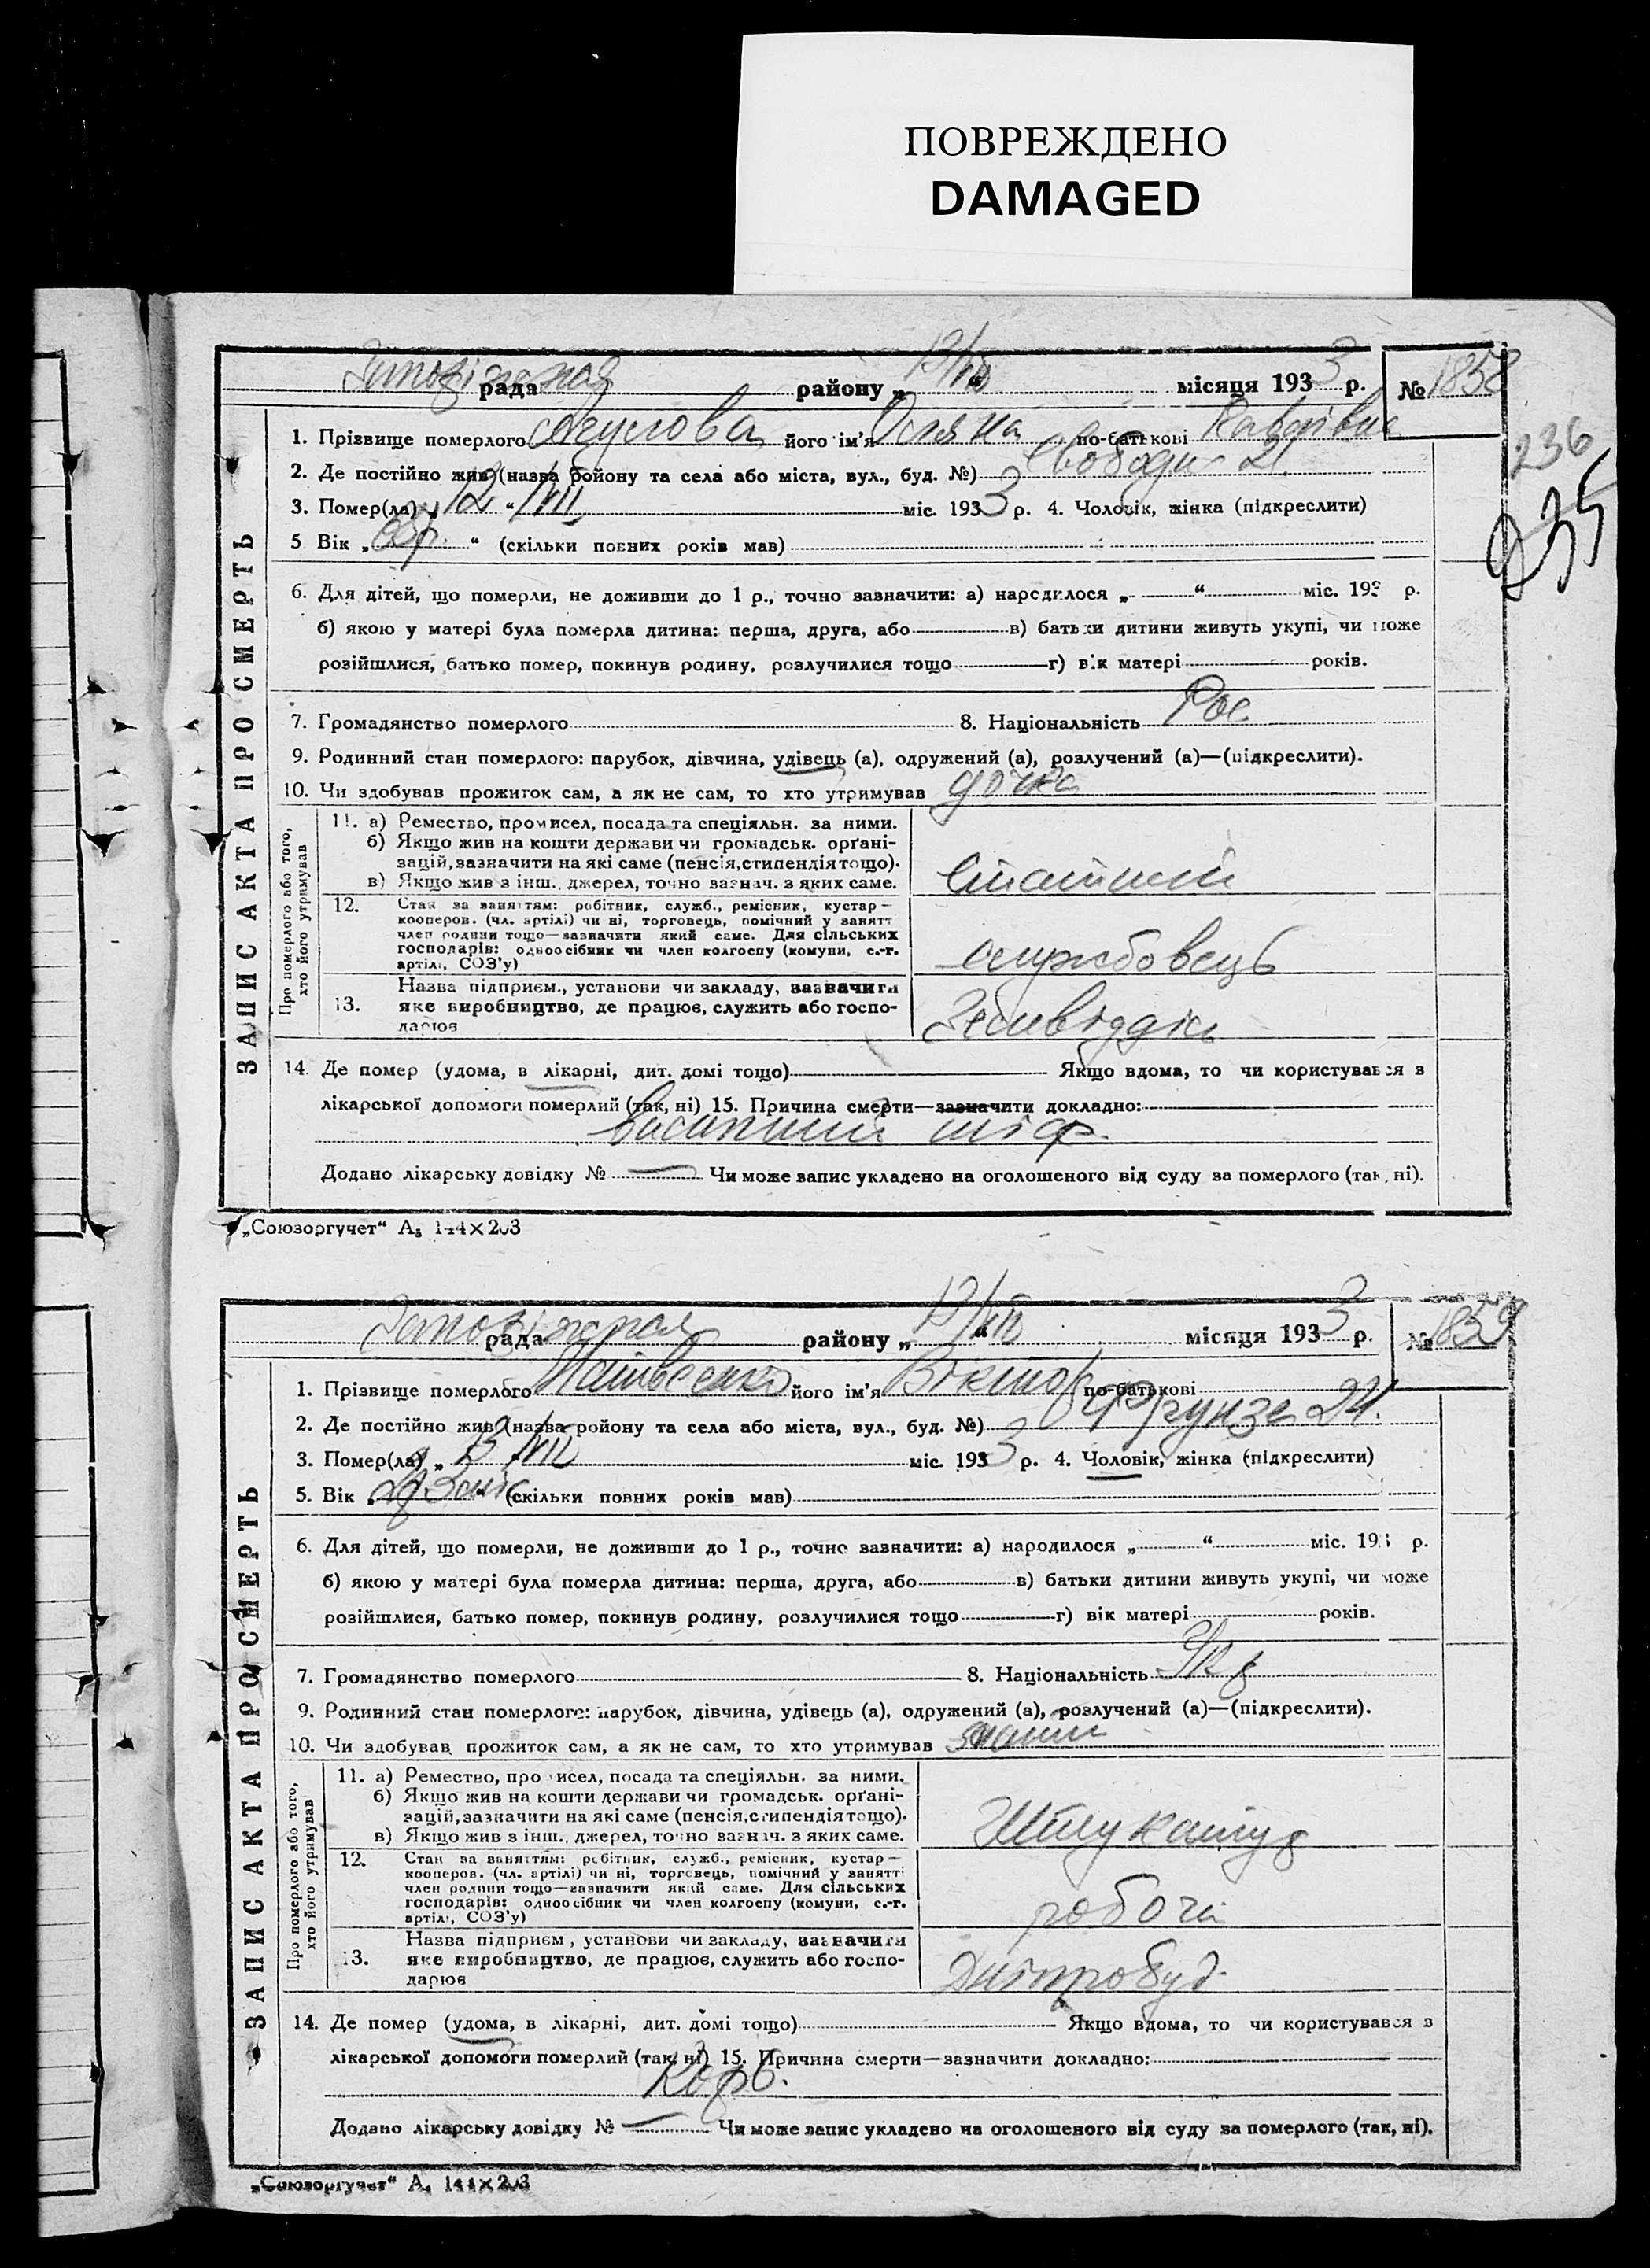 ПОВРЕЖДЕНО
DAMAGED
рада району „ 13/VII “ місяця 1933 р. № 1858
1. Прізвище померлого його ім'я по-батькові
2. Де постійно жив (назва ройону та села або міста, вул., буд. №) Свободи 21.
3. Помер(ла) „ 12 “ VII міс. 1933 р. 4. Чоловік, жінка (підкреслити)
5 Вік „ “ (скільки повних років мав)
236
235
6. Для дітей, що померли, не доживши до 1 р., точно зазначити: а) народилося „ “ міс. 193 р.
б) якою у матері була померла дитина: перша, друга, або в) батьки дитини живуть укупі, чи може
розійшлися, батько помер, покинув родину, розлучилися тощо г) вік матері років.
7. Громадянство померлого 8. Національність Рос
9. Родинний стан померлого: парубок, дівчина, удівець (а), одружений (а), розлучений (а)—(підкреслити).
10. Чи здобував прожиток сам, а як не сам, то хто утримував дочка
ЗАПИС АКТА ПРО СМЕРТЬ
Про померлого або того, хто його утримував
11. а) Ремество, промисел, посада та спеціяльн. за ними.
б) Якщо жив на кошти держави чи громадськ. орґані-
зацій, зазначити на які саме (пенсія, стипендія тощо).
в) Якщо жив з інш. джерел, точно зазнач. з яких саме.
12. Стан за заняттям: робітник, служб., ремісник, кустар—
кооперов. (чл. артілі) чи ні, торговець, помічний у занятт
член родини тощо—зазначити який саме. Для сільських
господарів: одноосібник чи член колгоспу (комуни, с.-г.
артілі, СОЗ'у) службовець
13. Назва підприєм., установи чи закладу, зазначити
яке виробництво, де працює, служить або госпо-
дарює
14. Де помер (удома, в лікарні, дит. домі тощо) Якщо вдома, то чи користувався в
лікарської допомоги померлий (так, ні) 15. Причина смерти—зазначити докладно:
висипний тіф.
Додано лікарську довідку № — Чи може запис укладено на оголошеного від суду за померлого (так, ні).
„Союзоргучет“ А₅ 144×203
рада району „ 13/VII “ місяця 1933 р. № 1859
1. Прізвище померлого Матвеєнко його ім'я Віктор по-батькові
2. Де постійно жив (назва ройону та села або міста, вул., буд. №) Фрунзе 24.
3. Помер(ла) „ VII міс. 1933 р. 4. Чоловік, жінка (підкреслити)
5. Вік „ “ (скільки повних років мав)
6. Для дітей, що померли, не доживши до 1 р., точно зазначити: а) народилося „ “ міс. 193 р.
б) якою у матері була померла дитина: перша, друга, або в) батьки дитини живуть укупі, чи може
розійшлися, батько помер, покинув родину, розлучилися тощо г) вік матері років.
7. Громадянство померлого 8. Національність Укр
9. Родинний стан померлого: парубок, дівчина, удівець (а), одружений (а), розлучений (а)—(підкреслити).
10. Чи здобував прожиток сам, а як не сам, то хто утримував
ЗАПИС АКТА ПРО СМЕРТЬ
Про померлого або того, хто його утримував
11. а) Ремество, промисел, посада та спеціяльн. за ними.
б) Якщо жив на кошти держави чи громадськ. орґані-
зацій, зазначити на які саме (пенсія, стипендія тощо).
в) Якщо жив з інш. джерел, точно зазнач. з яких саме. Штукатур
12. Стан за заняттям: робітник, служб., ремісник, кустар—
кооперов. (чл. артілі) чи ні, торговець, помічний у занятті
член родини тощо—зазначити який саме. Для сільських
господарів: одноосібник чи член колгоспу (комуни, с.-г.
артілі, СОЗ'у) робочи
13. Назва підприєм., установи чи закладу, зазначити
яке виробництво, де працює, служить або госпо-
дарює Дніпробуд
14. Де помер (удома, в лікарні, дит. домі тощо) Якщо вдома, то чи користувався з
лікарської допомоги померлий (так, ні) 15. Причина смерти—зазначити докладно:
Корь.
Додано лікарську довідку № — Чи може запис укладено на оголошеного від суду за померлого (так, ні).
„Союзоргучет“ А₅ 144×203